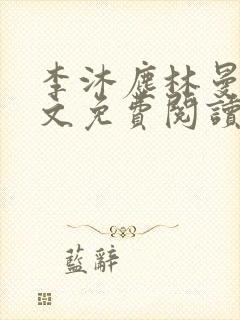 李沐塵林曼
文免費閱讀
藍辭